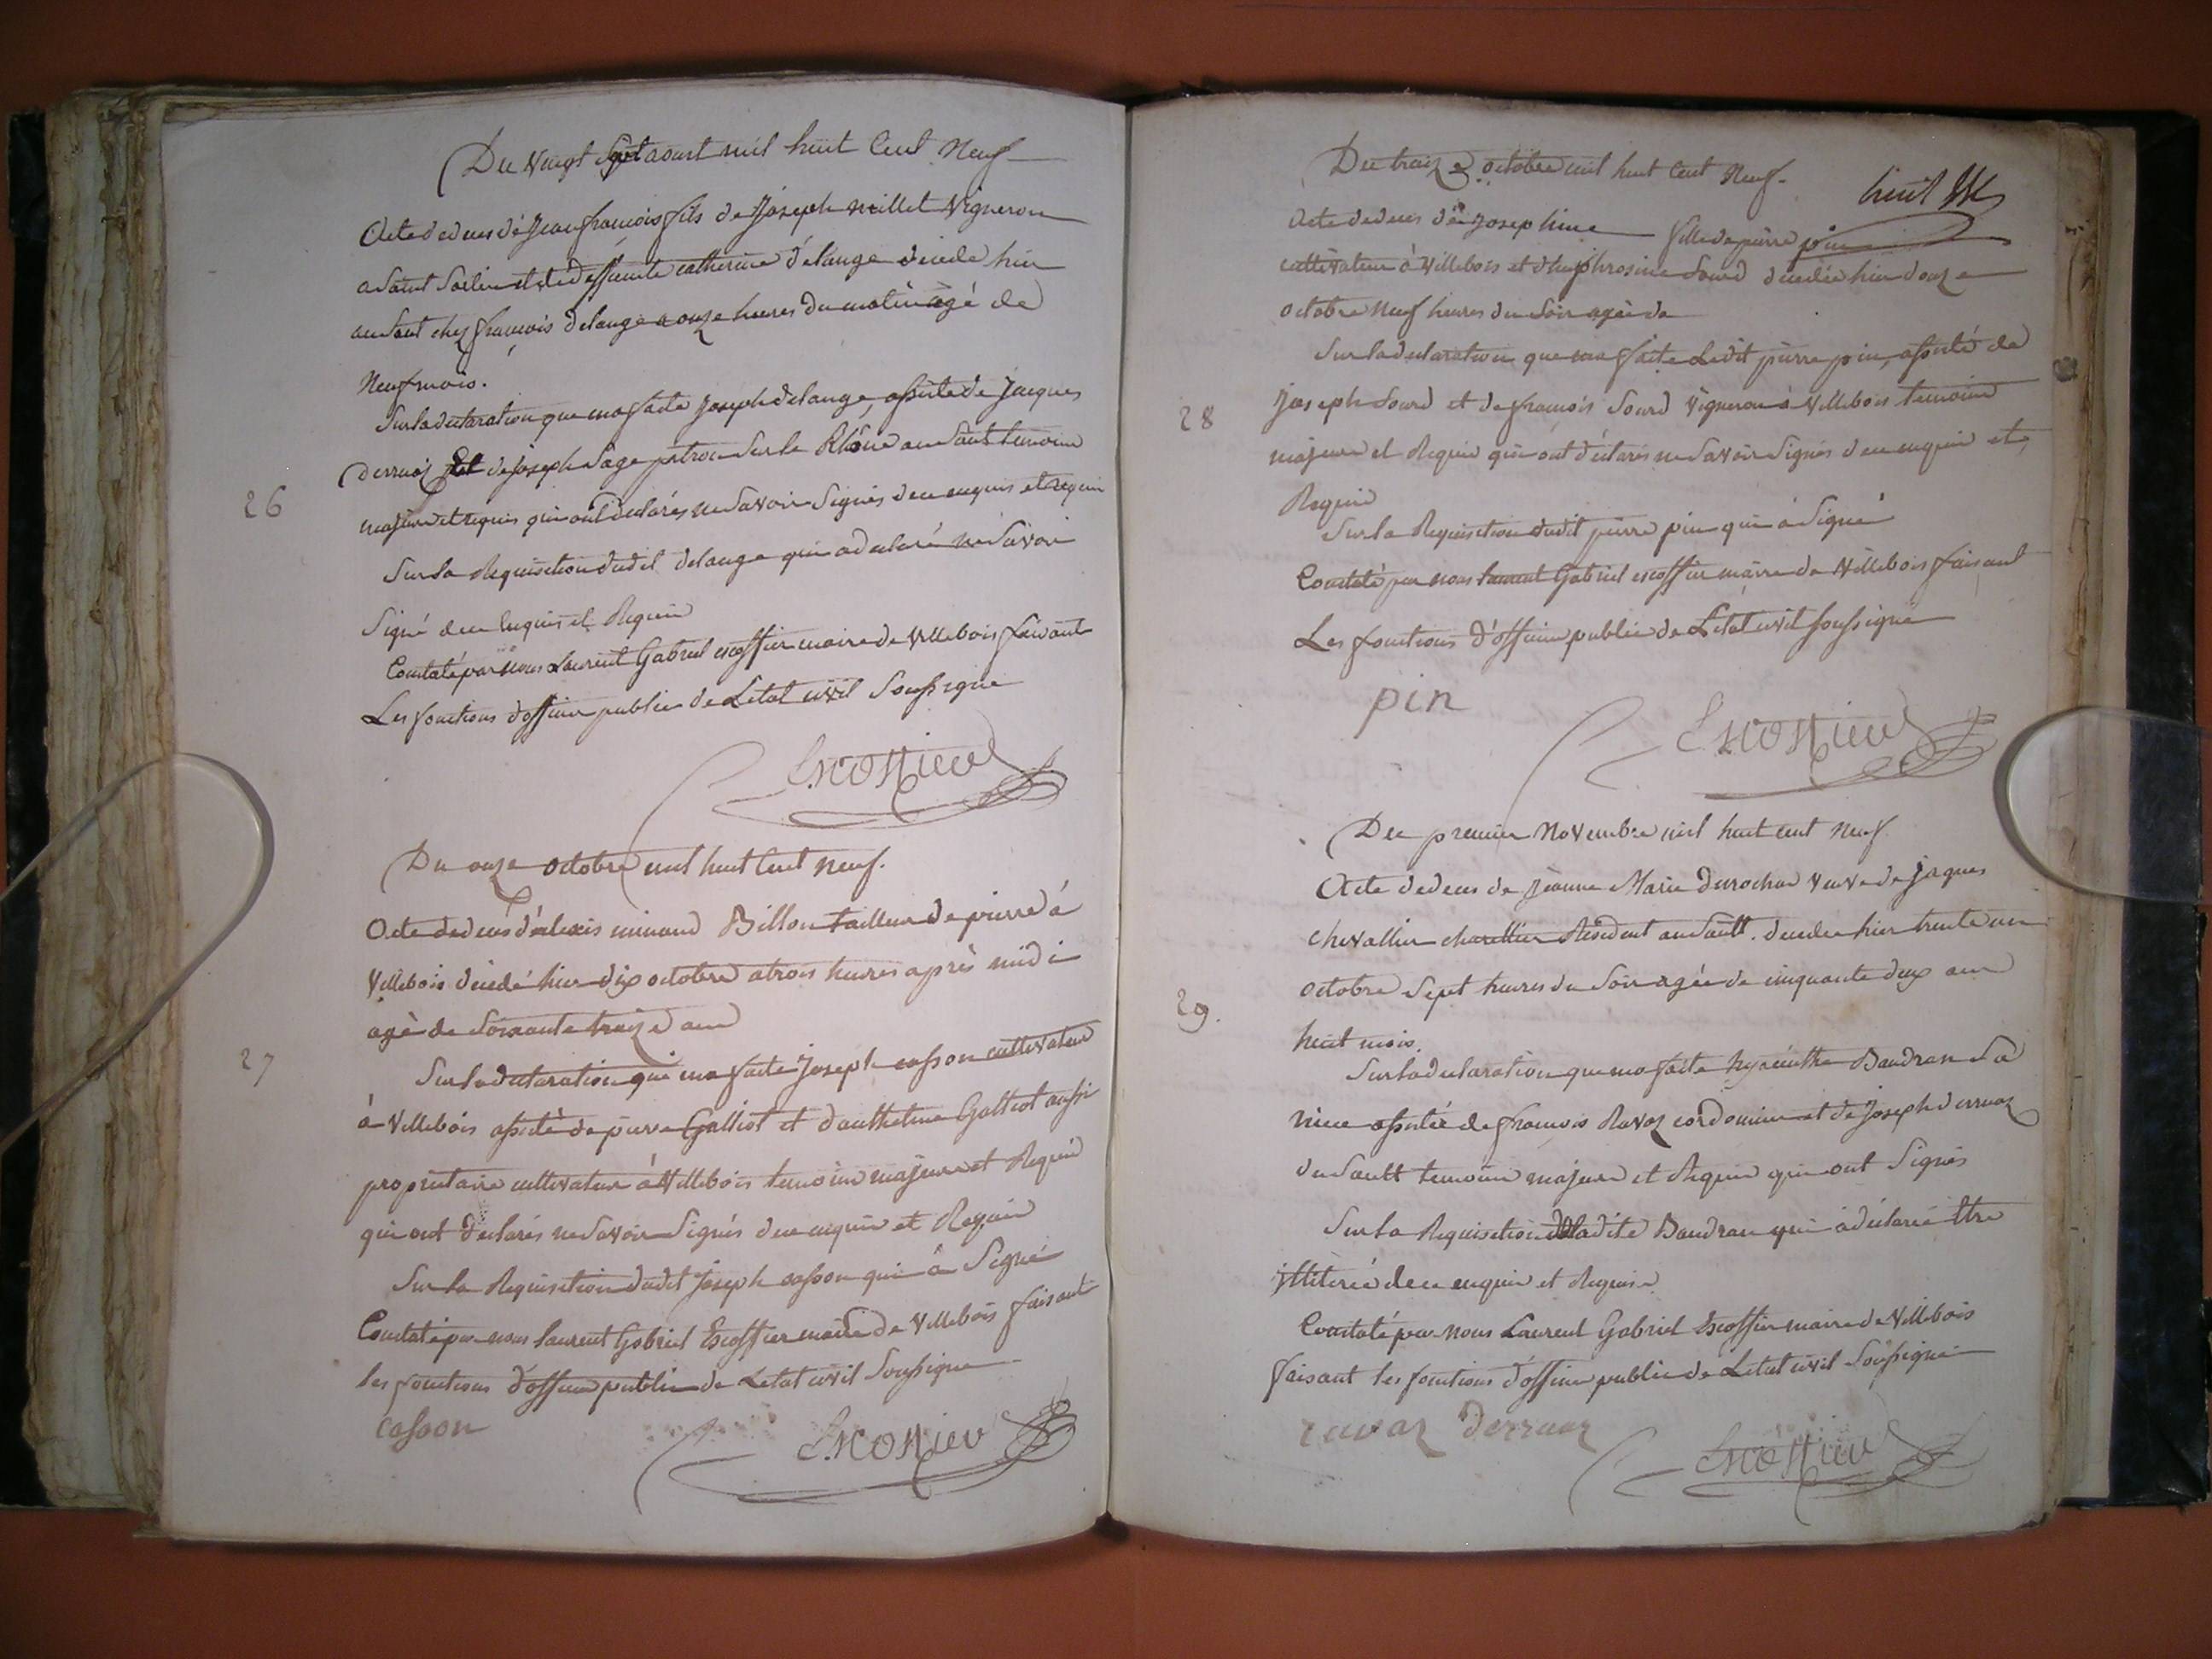 Du Vingt Sept aoust mil huit Cent Neuf
Acte de deces de Jean françois fils de Joseph millet Vigneron
a Saint Sorlin et de deffuncte catherine délange décédé hier
au Saut chez françois delange a onze heures du matin agé de
Neuf mois.
Sur la declaration que ma faite Joseph delange, assisté de Jacques
derruaz et de Joseph Sage patron Sur le Rhône au Sault temoins
26
majeurs et requis qui ont declarés ne Savoir Signés de ce enquis et requis
Sur la Requisition dudit delange qui a declaré ne Savoir
Signé de ce enquis et Requis
Constaté par nous Laurent Gabriel escoffier maire de Villebois faisant
Les fonctions d'officier public de Letat civil Soussigne
Escoffier
Du onze octobre mil huit Cent neuf.
Acte de deces d'alexis minand Billon tailleur de pierre á
Villebois décédé hier dix octobre a trois heures après midi
agé de Soixante treize ans
27
Sur la declaration que ma faite Joseph casson cultivateur
à Villebois assisté de pierre Galliot et d'anthelme Galliot aussi
propriétaire cultivateur á Villebois temoins majeurs et Requis
qui ont declarés ne Savoir Signés de ce enquis et Requis
Sur la Requisition dudit Joseph casson qui à Signé
Constaté par nous laurent Gabriel Escoffier maire de Villebois faisant
les fonctions d'officier public de Letat civil Soussigne
casson
Escoffier
Du treize octobre mil huit Cent Neuf.
huit
Acte de deces de Josephine fille de pierre pin
cultivateur à Villebois et d'euphrosine Sourd décédée hier douze
octobre Neuf heures du Soir agée de
Sur la declaration que ma faite Ledit pierre pin, assisté de
28
Joseph Sourd et de françois Sourd Vigneron à Villebois temoins
majeurs et Requis qui ont déclarés ne Savoir Signés de ce enquis et
Requis
Sur la Requisition dudit pierre pin qui à Signé
Constaté par nous laurent Gabriel escoffier maire de Villebois faisant
Les fonctions d'officier public de Létat civil soussigné
pin
Escoffier
Du premier Novembre mil huit cent Neuf.
Acte de deces de Jeanne Marie durochat veuve de Jaques
chevallier charettier Résident au Sault. décédée hier trente un
octobre Sept heures du Soir agée de cinquante deux ans
29.
huit mois.
Sur la declaration que ma faite hyacinthe Baudran Sa
niece assistée de françois Ravaz cordonnier et de Joseph derruaz
du Sault temoins majeurs et Requis qui ont Signés
Sur la Requisition de ladite Baudran qui à déclaré être
illiterée de ce enquise et Requise
Constaté par nous Laurent Gabriel Escoffier maire de Villebois
faisant les fonctions d'officier public de Letat civil Soussigné
ravaz derruaz
Escoffier